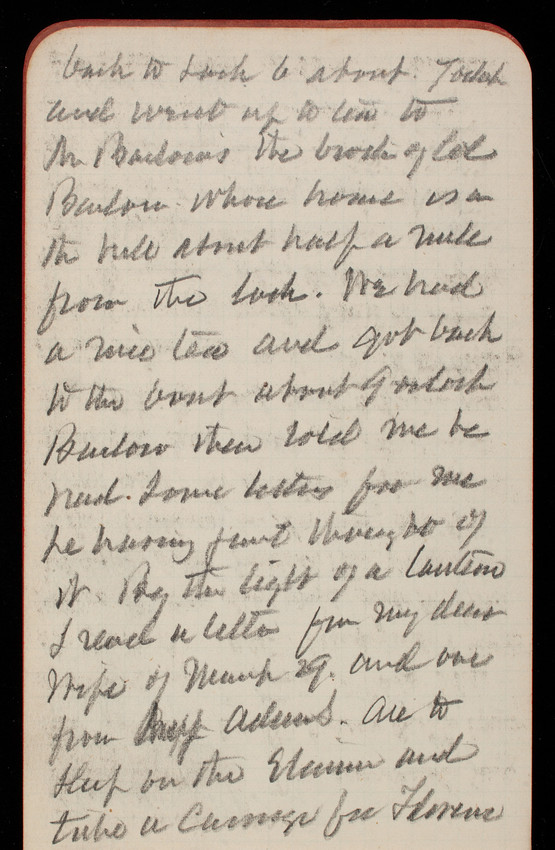 back to Lock 6 about 7 oclock
and went up to tea to
Mr Barlow's the broth of Col
Barlow whose home is on
the hill about half a mile
from the lock. We had
a nice tea and got back
to the boat about 9 oclock
Barlow then told me he
had some letters for me
he having just thought of
it. By the light of a lantern
I read a letter from my dear
Wife of March 29. and one
from Adams. are to
sleep on the Steamer and
take a Carriage for Florence